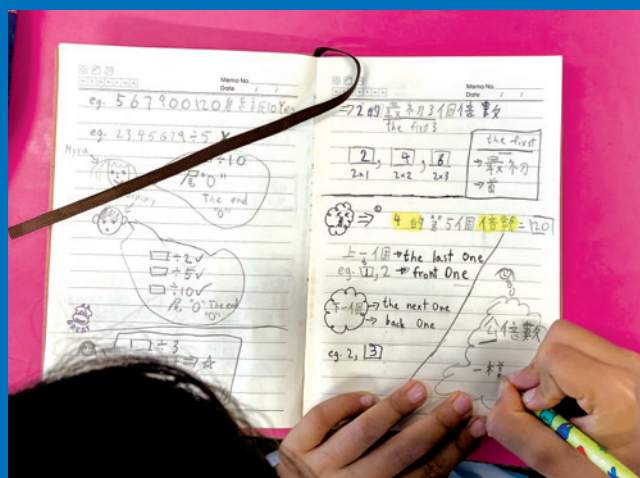 Memo No.
Date / /
eg. 567900120 ÷10 Yes
eg. 2345679÷5 ✗
Myra
÷10
尾"0"
The end
"0"
÷2✓
÷5✓
÷10✓
尾"0" The end
"0"
GREAT
÷3
Memo No.
Date / /
⇒2的最初3個倍數
the first 3
2, 4, 6
2×1 2×2 2×3
the first
→最初
→首
⇒ 4的第5個倍數=20
上一個→the last One
eg. 1, 2 → front One
下一個→the next One
→back One
eg. 2, 3
公倍數
一樣